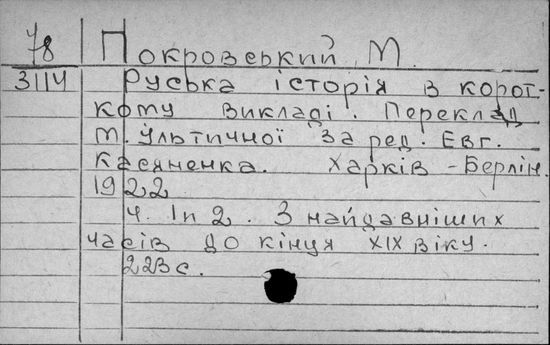 78 Покровський, М.
3114 Руська історія в корот-
кому викладі. Переклад
М. Ультичної за ред. Евг.
Касяненка. Харків - Берлін.
1922
ч. 1 п 2. З найдавніших
часів до кінця XIX віку.
223 с.